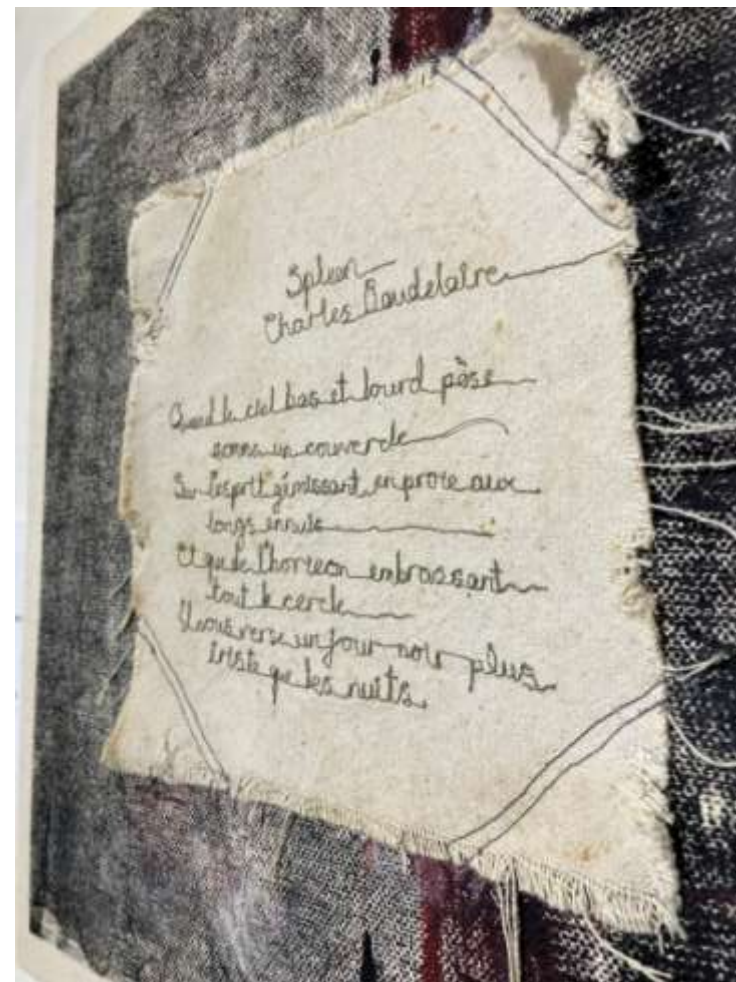 Spleen
Charles Baudelaire
Quand le ciel bas et lourd pèse
comme un couvercle
Sur l'esprit gémissant en proie aux
longs ennuis
Et que de l'horizon embrassant
tout le cercle
Il nous verse un jour noir plus
triste que les nuits.